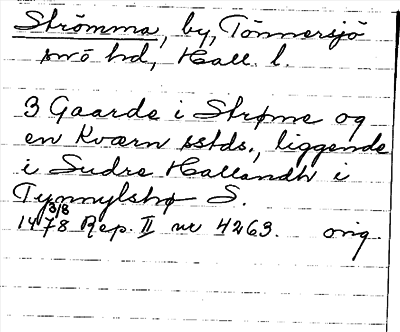 Strömma, by, Tönnersjö
snö hd, Hall. l.
3 Gaarde i Strøme og
en Kværn sstds., liggende
i Sudre Hallandh i
Tynnylshø S.
1478 3/8 Rep. II nr 4263. orig.